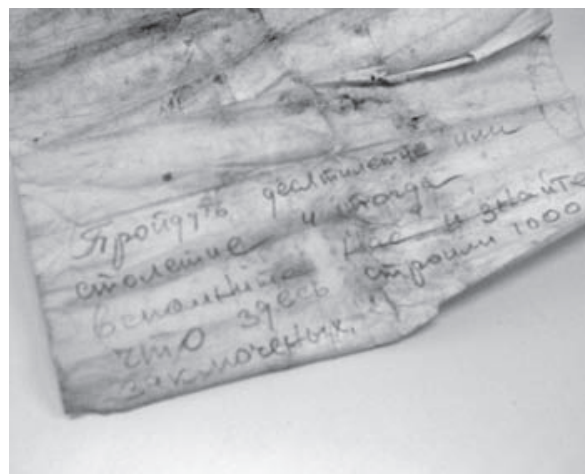 Пройдуть десятилетие или
столетие и тогда
вспомните нас и знайте
что здесь строили 1000
заключеных.